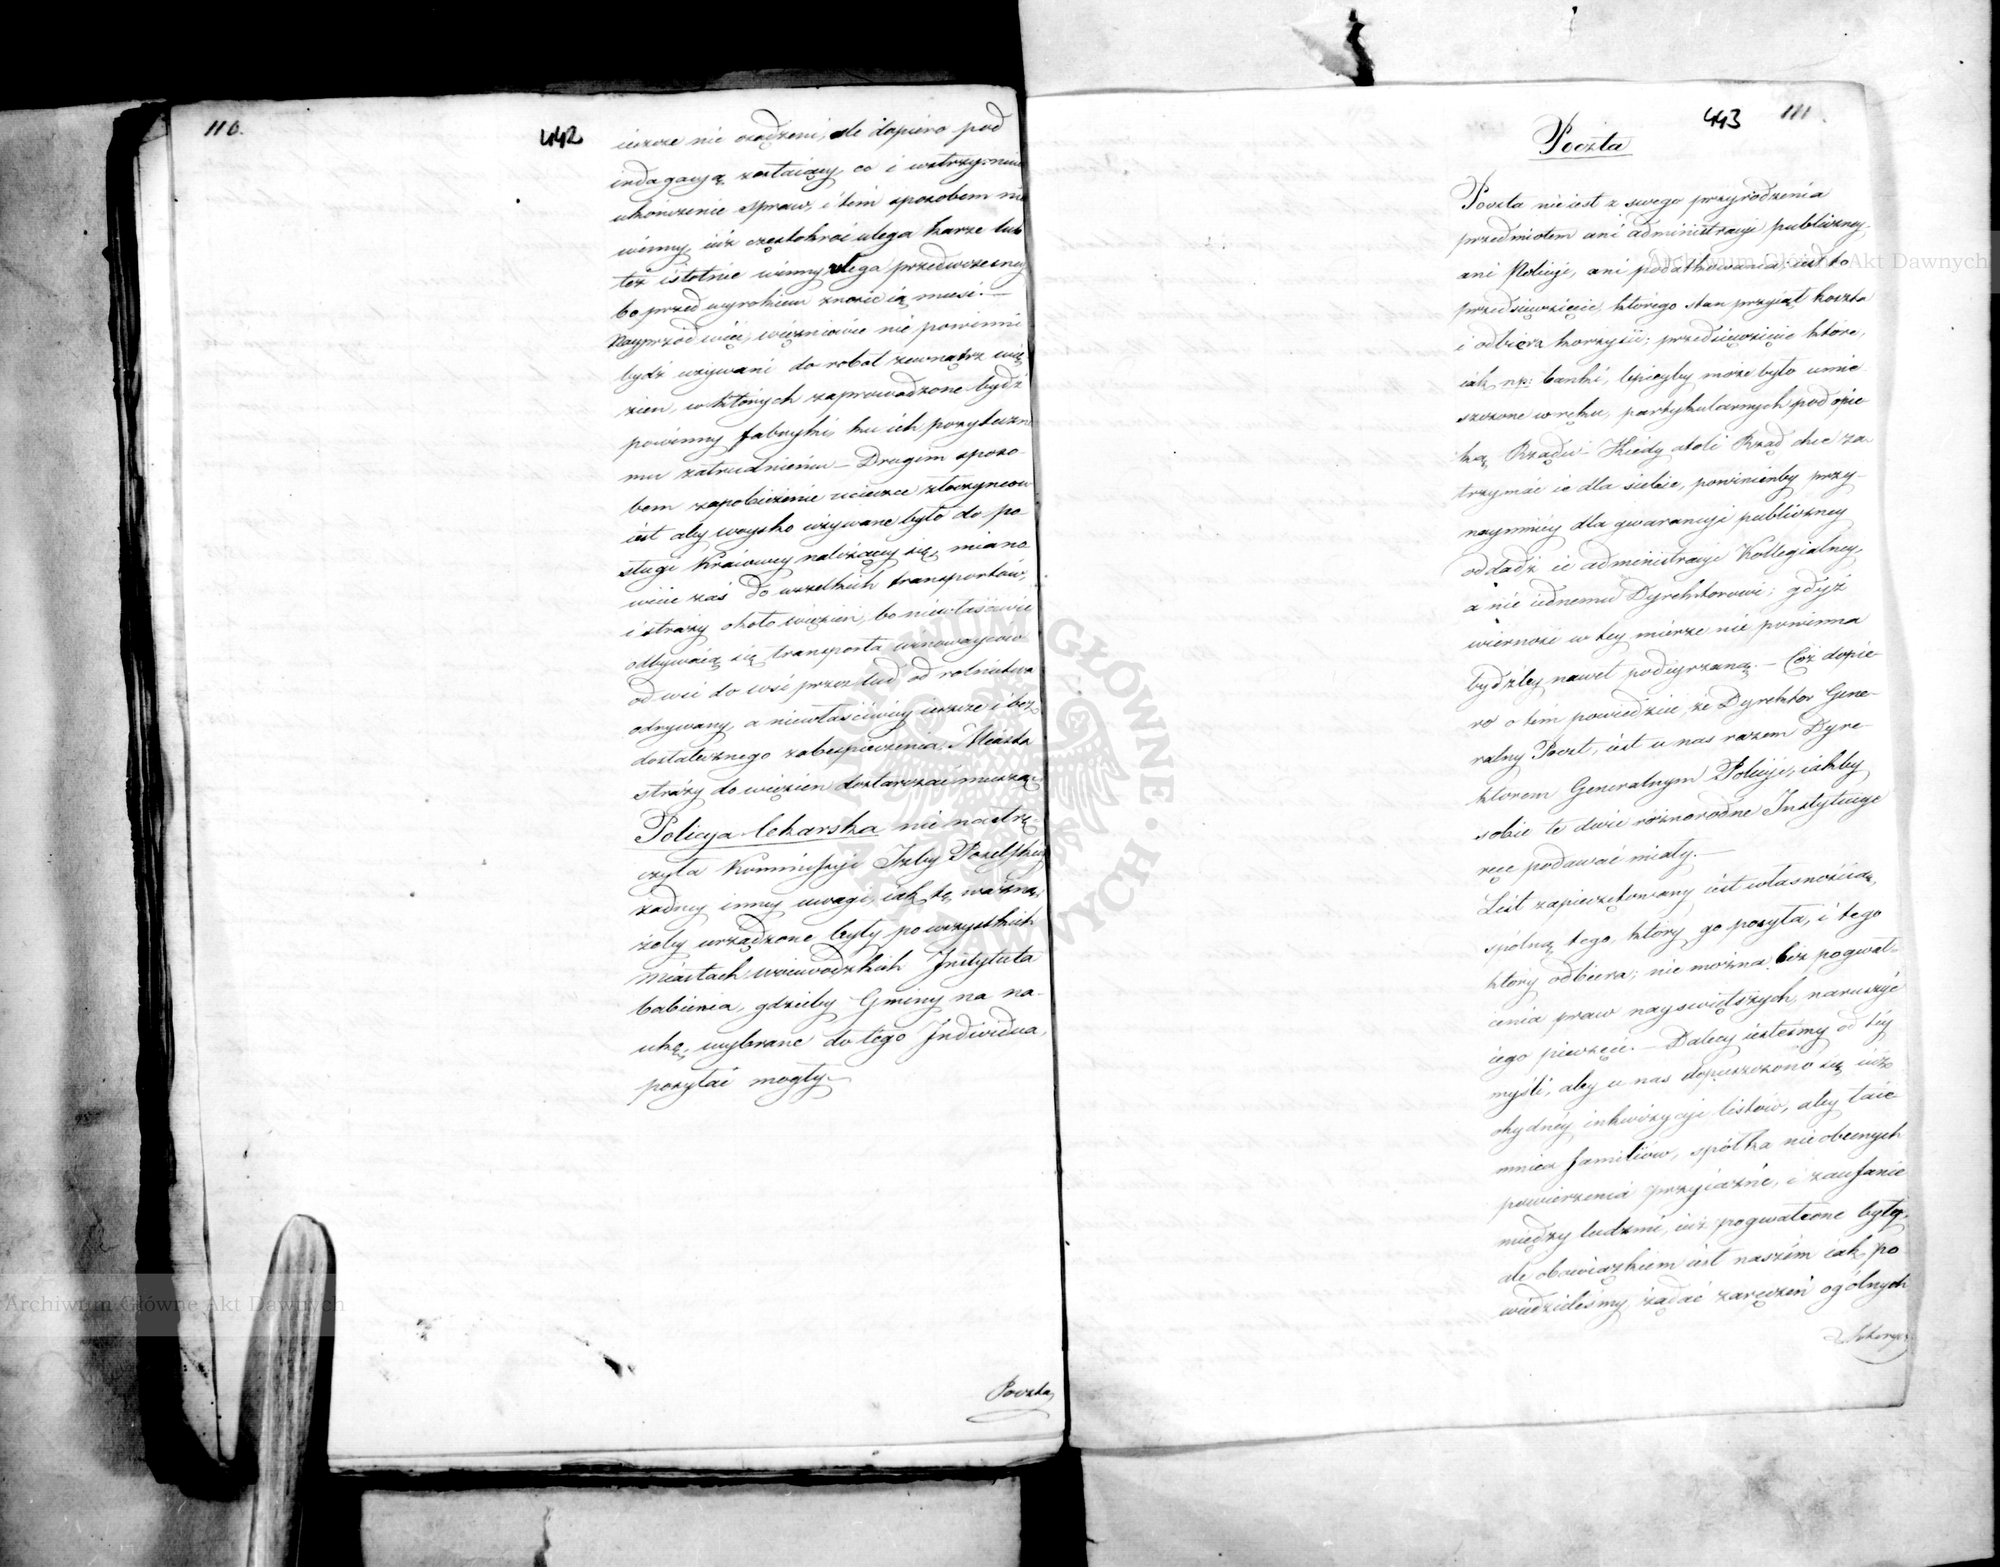 110.
442
ieszcze nie osądzeni, ale dopiero pod
indagacyą zostaiący, co i wstrzymuie
ukończenie spraw, i tém sposobem nie
winny iuż częstokroć ulega karze lub
też istotnie winny ulega przedwczesney
bo przed wyrokiem znosić ią musi. —
Nayprzód więc, więzniowie nie powinni
bydź używani do robot zewnątrz wię
zien, w których zaprowadzone bydź
powinny fabryki, ku ich pożyteczne
mu zatrudnieniu — Drugim sposo-
bem zapobieżenia ucieczce złoczyńców
iest aby woysko używane było do po
sługi Kraiowey należącey się, miano
wicie zaś do wszelkich transportów,
i straży około więzień, bo niewłaściwie
odbywaią się transporta winowayców
od wsi do wsi przez lud od rolnictwa
odrywany, a niewłaściwiey ieszcze i bez
dostatecznego zabespieczenia, Miasta
straży do więzien dostarczać muszą.
Policya lekarska nie nastrę-
czyła Kommissyi Izby Poselskiey
żadney inney uwagi, iak tę ważną,
żeby urządzone były po wszystkich
Miastach woiewodzkich Instytuta
babienia, gdzieby Gminy na na-
ukę, wybrane do tego Individua,
posyłać mogły. —
Poczta
443
111.
Poczta
Poczta nie iest z swego przyrodzenia
przedmiotem ani administracyi publiczney,
ani Policyi, ani podatkowania, iest to
przedsięwzięcie, którego stan przyiął koszta
i odbiera korzyści; przedsięwzięcie które,
iak np: banki, lepieyby może było umie
szczone w ręku, partykularnych pod opie
ką, Rządu — Kiedy atoli Rząd chce za-
trzymać ie dla siebie, powinienby przy-
naymniey dla gwarancyi publiczney
oddadź ie administracyi Kollegialney,
a nie iednemu Dyrektorowi; gdyż
wierność w tey mierze nie powinna
bydźby nawet podeyrzaną. — Cóż dopie
ro o tém powiedzieć, że Dyrektor Gene-
ralny Poczt, iest u nas razem Dyre-
ktorem Generalnym Policyi, iakby
sobie te dwie różnorodne Instytucye
ręce podawać miały. —
List zapieczętowany iest własnością,
spólną tego, który go posyła, i tego
który odbiera; nie można bez pogwał-
cenia praw nayswiętszych, naruszyć
iego pieczęci. — Dalecy iesteśmy od tey
myśli, aby u nas dopuszczono się iuż
ohydnéy inkwizycyi listów, aby taie
mnica familiów, spółka nieobecnych
powierzenia przyiaźni, i zaufanie
między ludzmi, iuż pogwałcone były,
ale obowiązkiem iest naszém iak po
wiedzieliśmy żądać zaręczeń ogólnych
Archiwum Główne Akt Dawnych
Archiwum Główne Akt Dawnych
ARCHIWUM GŁÓWNE AKT DAWNYCH